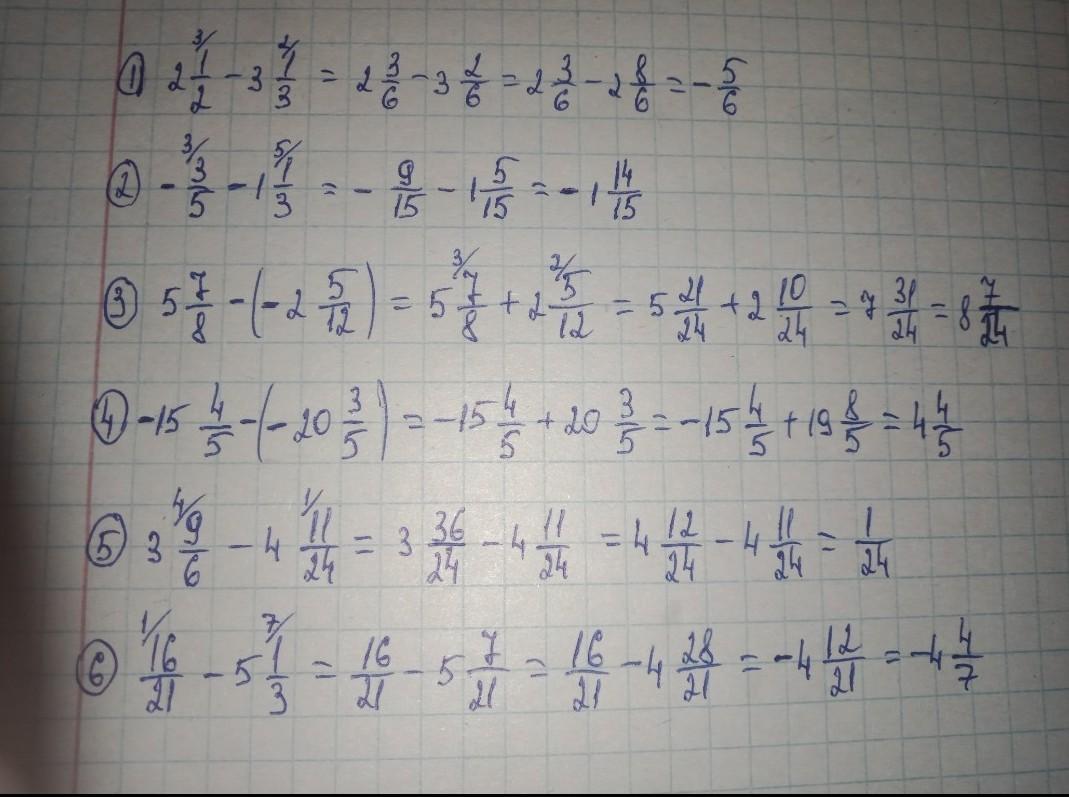 ① 2 3/ 1/2 - 3 2/ 1/3 = 2 3/6 - 3 2/6 = 2 3/6 - 2 8/6 = - 5/6
② - 3/ 3/5 - 1 5/ 1/3 = - 9/15 - 1 5/15 = - 1 14/15
③ 5 7/8 - (- 2 5/12) = 5 3/ 7/8 + 2 2/ 5/12 = 5 21/24 + 2 10/24 = 7 31/24 = 8 7/24
④ -15 4/5 - (- 20 3/5) = -15 4/5 + 20 3/5 = -15 4/5 + 19 8/5 = 4 4/5
⑤ 3 4/ 9/6 - 4 1/ 11/24 = 3 36/24 - 4 11/24 = 4 12/24 - 4 11/24 = 1/24
⑥ 1/ 16/21 - 5 7/ 1/3 = 16/21 - 5 7/21 = 16/21 - 4 28/21 = -4 12/21 = -4 4/7